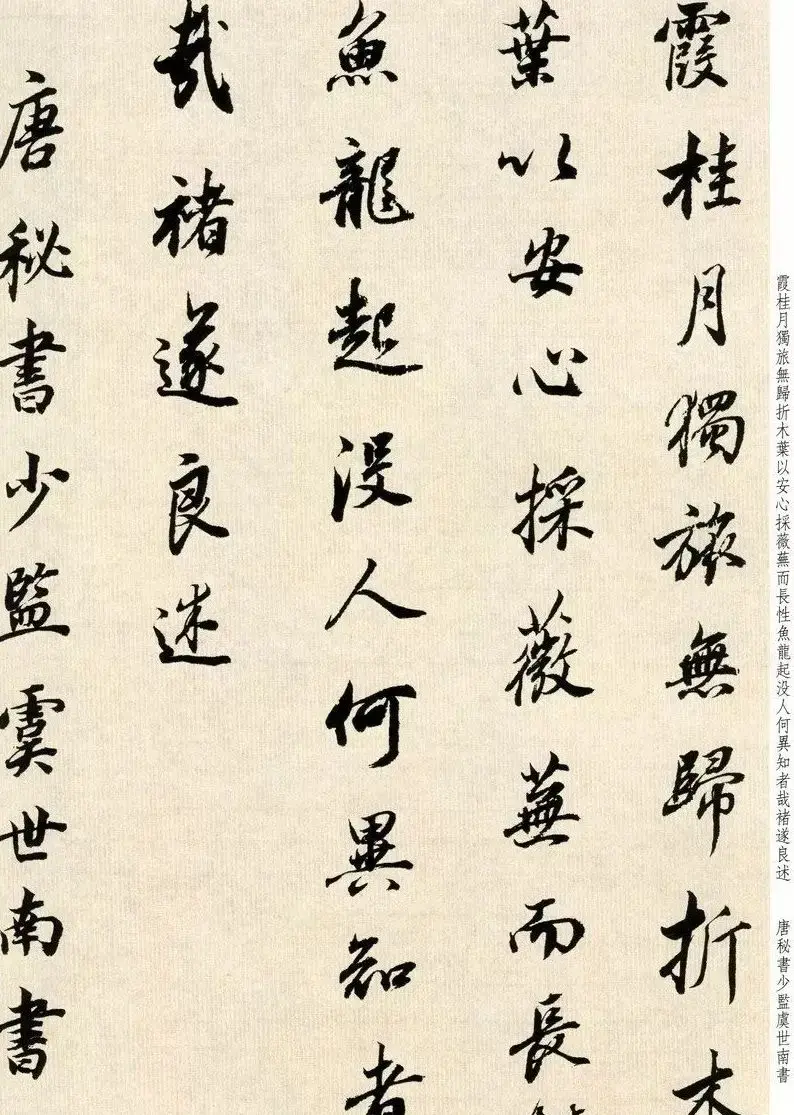 霞桂月獨旅無歸折木
葉以安心採薇蕪而長
魚龍起没人何異知者
哉褚遂良述
唐秘書少監虞世南書
霞桂月獨旅無歸折木葉以安心採薇蕪而長性魚龍起没人何異知者哉褚遂良述
唐秘書少監虞世南書